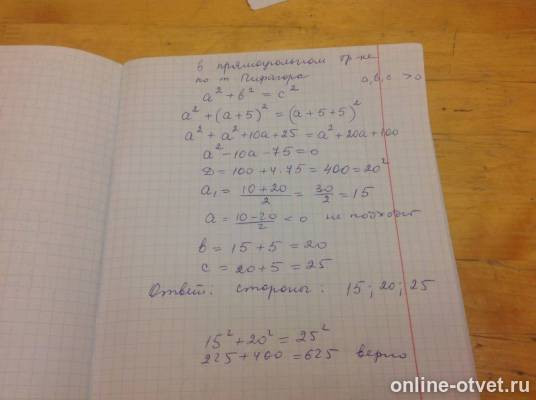 в прямоугольном тр-ке
по т Пифагора a,b,c >0
a² + b² = c²
a² + (a+5)² = (a+5+5)²
a² + a² +10a+25 = a² +20a+100
a² -10a -75 =0
D = 100 + 4·75 = 400 = 20²
a₁ = (10+20)/2 = 30/2 = 15
a = (10-20)/2 < 0 не подходит
b = 15 + 5 = 20
c = 20 + 5 = 25
Ответ: стороны: 15; 20; 25
15² + 20² = 25²
225 + 400 = 625 верно
online-otvet.ru